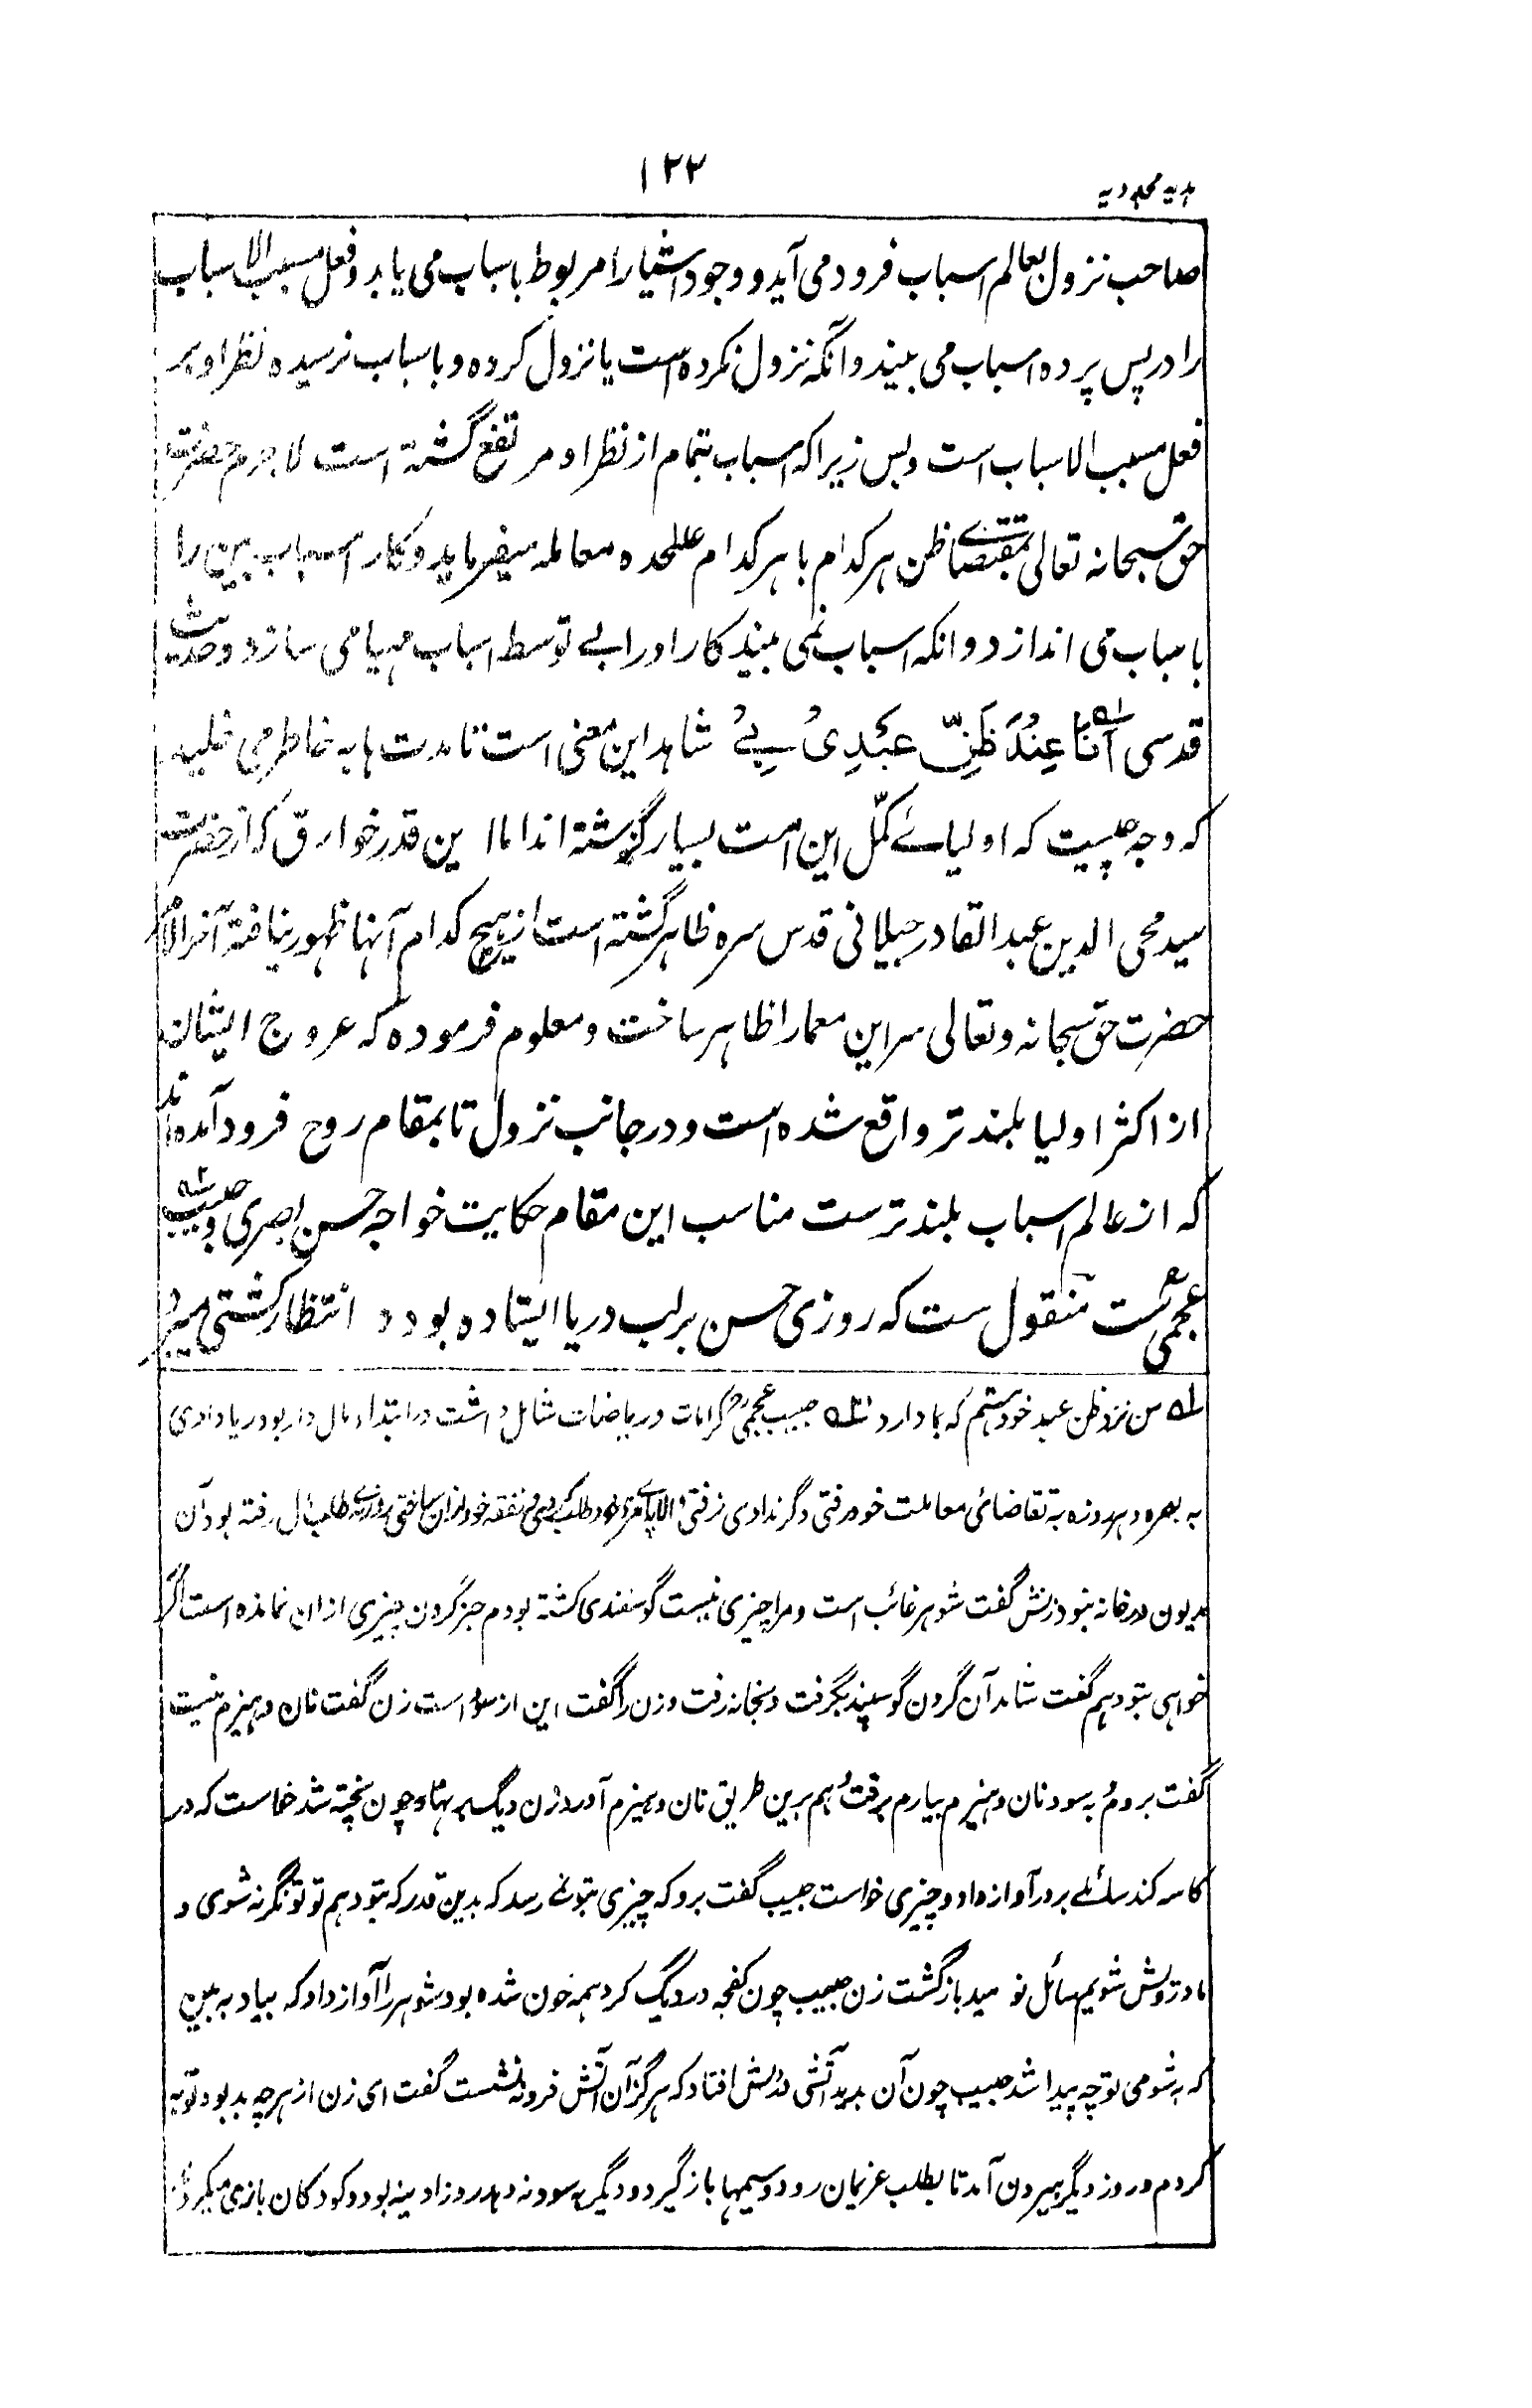 ۱۲۲
هدیه مجددیه
صاحب نزول بعالم اسباب فرود می آید و وجود اشیا را مربوط باسباب می یابد و فعل مسبب الاسباب
را در پس پرده اسباب می بیند و آنکه نزول نکرده است یا نزول کرده و باسباب نرسیده نظر او بر
فعل مسبب الاسباب است و بس زیرا که اسباب بتمام از نظر او مرتفع گشته است لاجرم حضرت
حق سبحانه تعالی بمقتضاے ظن هر کدام با هر کدام علٰحده معامله میفرماید و کار اسباب بین را
باسباب می اندازد و انکه اسباب نمی بیند کار او را بے توسط اسباب مهیا می سازد و حدیث
قدسی اَنَا عِنْدَ ظَنِّ عَبْدِیْ بِیْ شاهد این معنی است تا مدت ها به خاطر می خلید
که وجه چیست که اولیاے کمّل این امت بسیار گزشته اند اما این قدر خوارق که از حضرت
سید محی الدین عبد القادر جیلانی قدس سره ظاهر گشته است از هیچ کدام آنها ظهور نیافته آخر الامر
حضرت حق سبحانه و تعالی سر این معما را ظاهر ساخت و معلوم فرموده که عروج ایشان
از اکثر اولیا بلند تر واقع شده است و در جانب نزول تا بمقام روح فرود آمده اند
که از عالم اسباب بلند ترست مناسب این مقام حکایت خواجه حسن بصری و حبیب
عجمی ست منقول ست که روزی حسن بر لب دریا ایستاده بود و انتظار کشتی میبرد
له من نزد ظن عبد خود هستم که بما دارد ۲ه حبیب عجمی رح کرامات و ریاضات شامل داشت در ابتداء مال دار بود ربا دادی
به بصره و هر روزه به تقاضائی معاملت خود رفتی و گر ندادی نرفتی الا پای مزد خود طلب کردی و نفقه خود از ان ساختی روزے بطلب مال رفته بود آن
مدیون در خانه نبود زنش گفت شوهر غائب است و مرا چیزی نیست گوسفندی کشته بودم جز گردن چیزی از ان نمانده است اگر
خواهی بتو دهم گفت شاید آن گردن گوسپند بگرفت و بخانه رفت و زن را گفت این از سود است زن گفت نان و هیزم نیست
گفت بروم به سود نان و هیزم بیارم برفت و هم برین طریق نان و هیزم آورد زن دیگ بر نهاد چون پخته شد خواست که در
کاسه کند سائلے بر در آواز داد و چیزی خواست حبیب گفت برو که چیزی بتو نے رسد که بدین قدر که بتو دهم تو تونگر نه شوی و
ما درویش شویم سائل نومید بازگشت زن حبیب چون کفچه در دیگ کرد همه خون شده بود شوهر را آواز داد که بیا و به بین
که به شومی تو چه پیدا شد حبیب چون آن بدید آتشی در دلش افتاد که هرگز آن آتش فرو نه نشست گفت ای زن از هر چه بد بود توبه
کردم و روز دیگر بیرون آمد تا بطلب غریمان رود و سیمها باز گیرد و دیگر به سود نه دهد روز ادینه بود و کودکان بازی میکردند